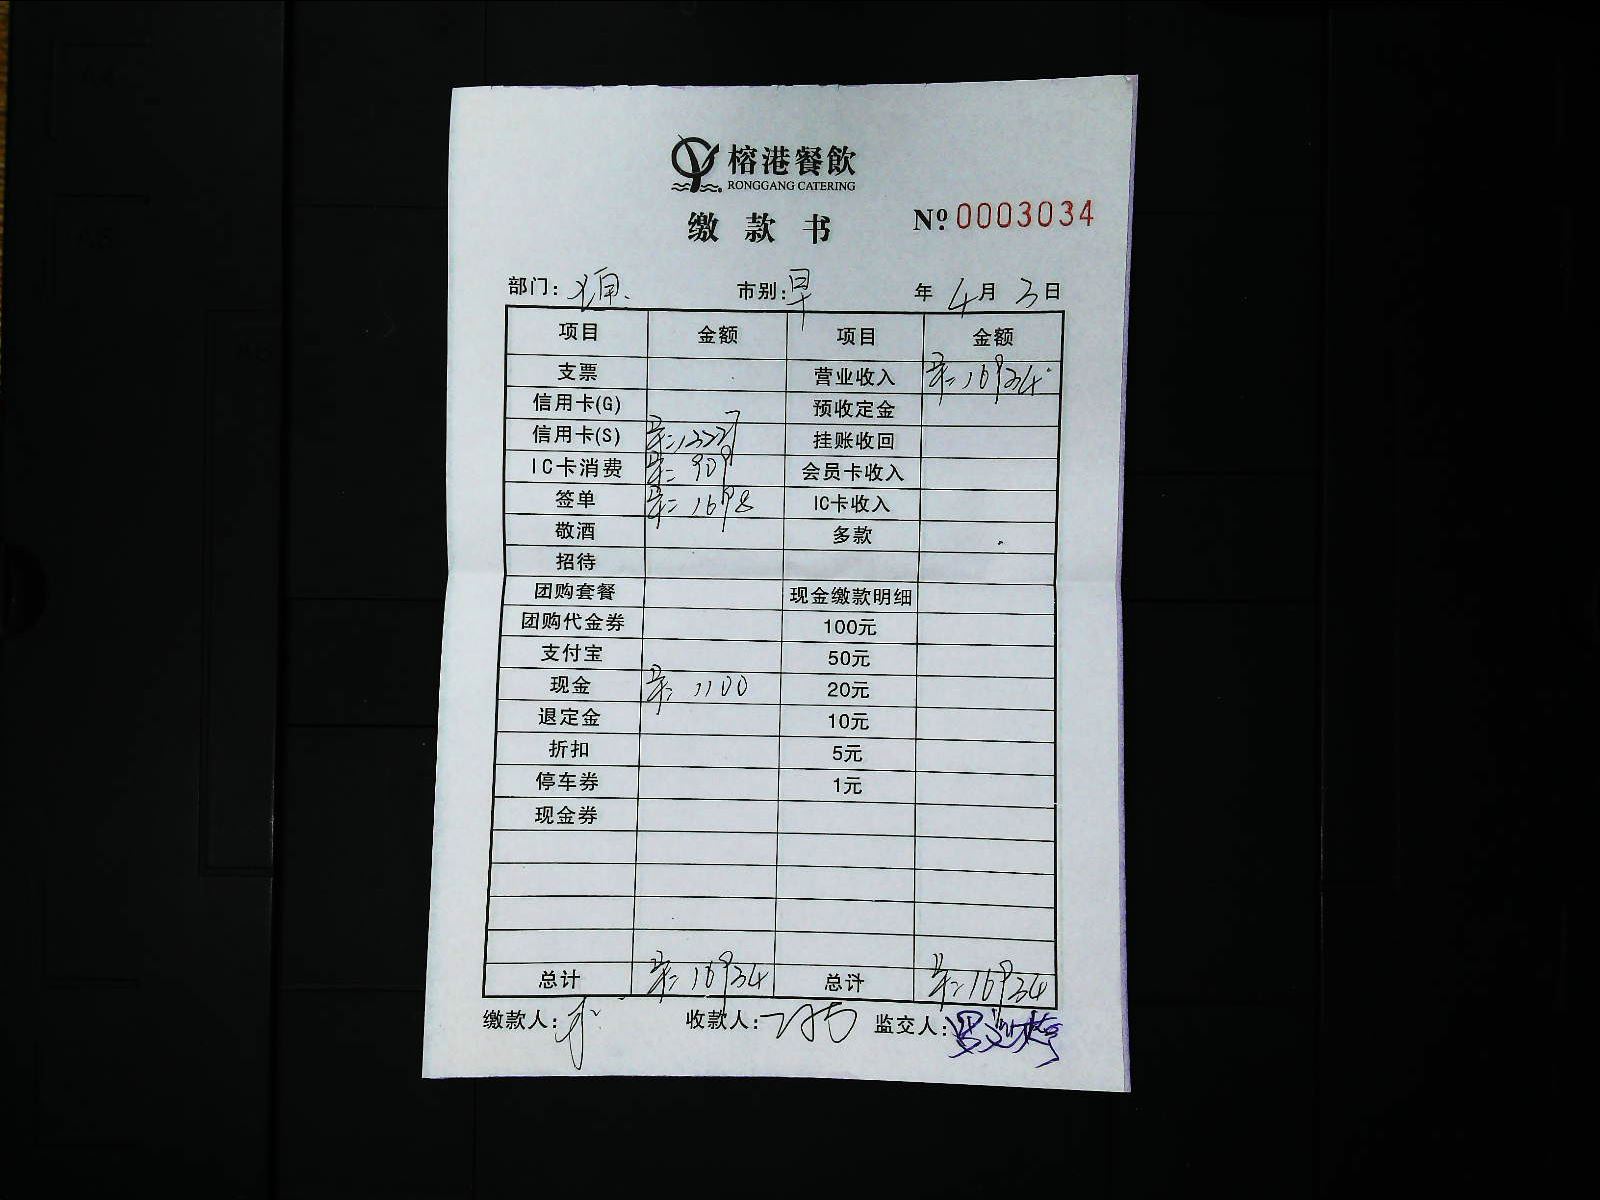 榕港餐飲
RONGGANG CATERING
缴款书
Nº: 0003034
部门: 市别: 早 年 4月 3日
项目 金额 项目 金额
支票 营业收入 16934
信用卡(G) 预收定金
信用卡(S) 13227 挂账收回
IC卡消费 909 会员卡收入
签单 1698 IC卡收入
敬酒 多款
招待
团购套餐 现金缴款明细
团购代金券 100元
支付宝 50元
现金 1100 20元
退定金 10元
折扣 5元
停车券 1元
现金券
总计 16934 总计 16934
缴款人: 收款人: 监交人: